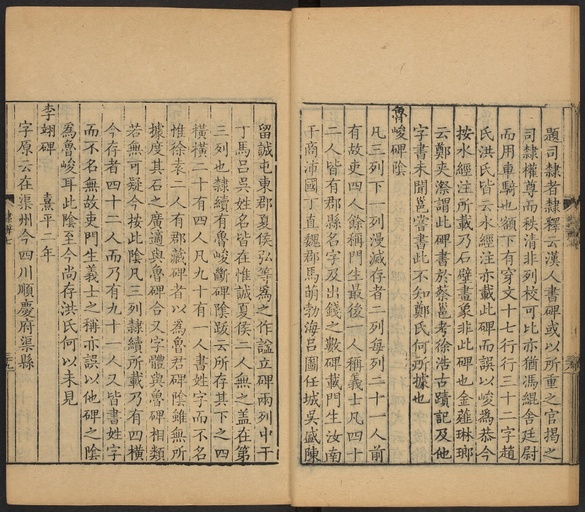 題司隸者隸釋云漢人書碑或以所重之官揭之
司隸權尊而秩清非列校可比亦猶馮緄舍廷尉
而用車騎也額下有穿文十七行行三十二字趙
氏洪氏皆云水經注亦載此碑而誤以峻為恭今
按水經注所載乃石壁畫象非此碑也金薤琳琅
云鄭夾漈謂此碑書於蔡邕考徐浩古蹟記及他
字書未聞邕嘗書此不知鄭氏何所據也
魯峻碑陰
凡三列下一列漫滅存者二列每列二十一人前
有故吏四人餘稱門生最後一人稱義士凡四十
二人皆有郡縣名字及出錢之數碑載門生汝南
干商沛國丁直魏郡馬萌勃海呂圖任城吳盛陳
留誠屯東郡夏侯弘等為之作謚立碑兩列中干
丁馬呂吳姓名皆在惟誠夏侯二人無之蓋在第
三列也隸續有魯峻斷碑陰跋云所存其下之四
橫橫二十有四人凡九十有一人書姓字而不名
惟徐袁二人有郡藏碑者以為魯君碑陰雖無所
據度其石之廣適與魯碑合又字體與魯碑相類
若無可疑今按此陰凡三列隸續所載乃有四橫
今存者四十二人而乃有九十一人又皆書姓字
而不名無故吏門生義士之稱亦誤以他碑之陰
為魯峻耳此陰至今尚存洪氏何以未見
李翊碑 熹平二年
字原云在渠州今四川順慶府渠縣